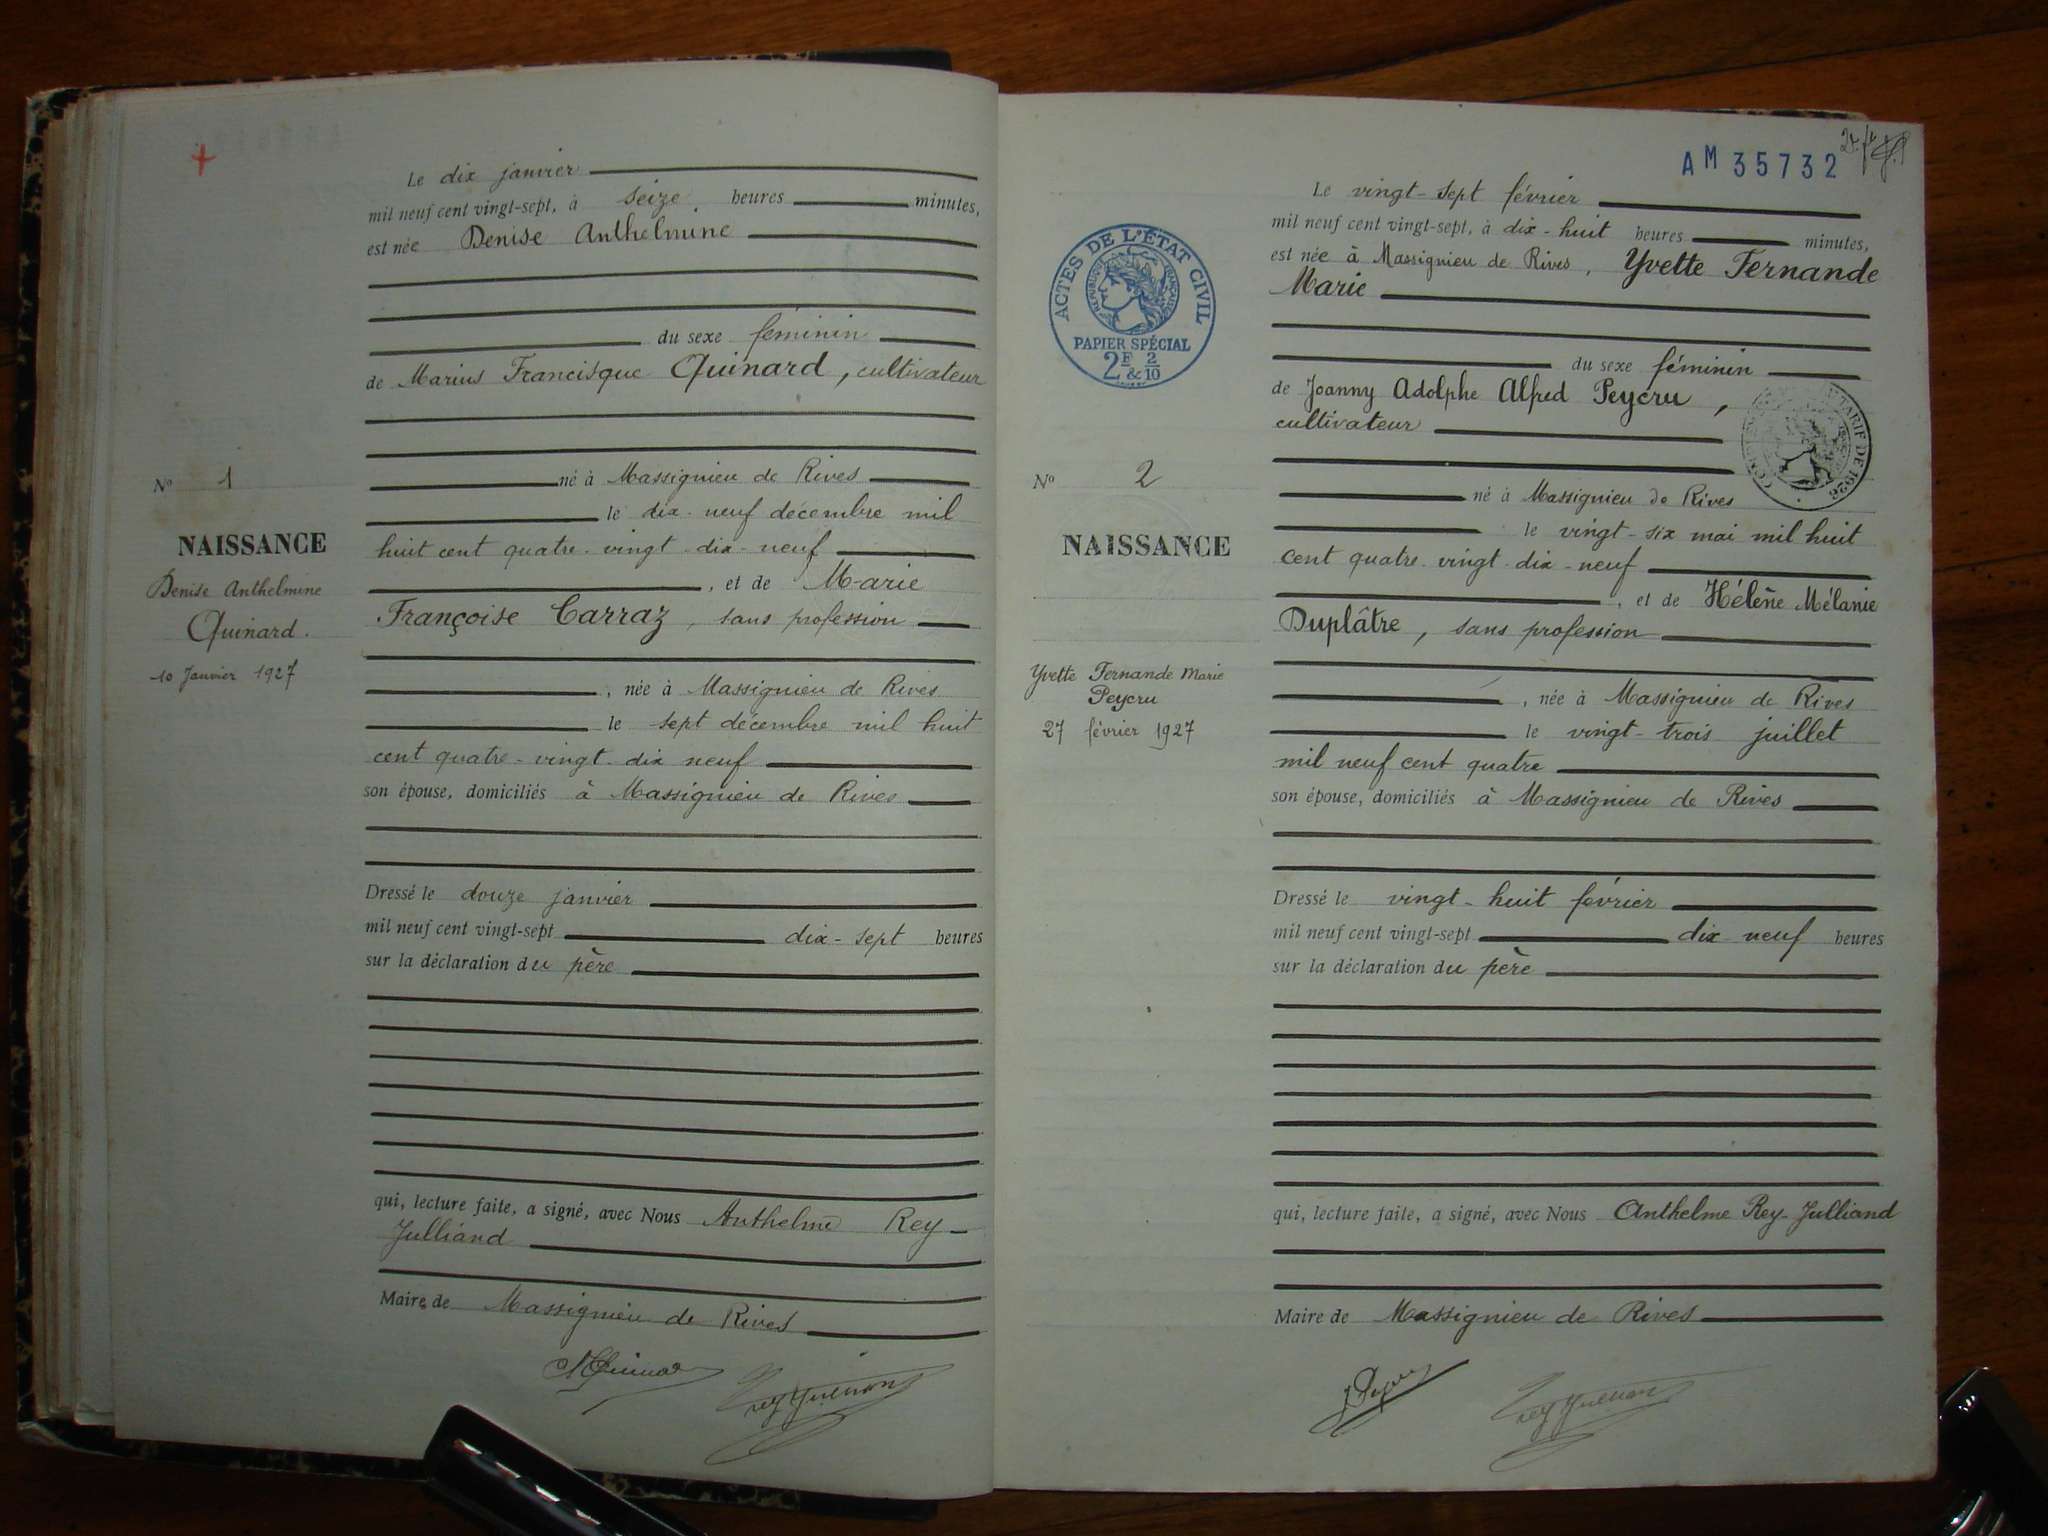 Le dix janvier
mil neuf cent vingt-sept, à seize heures minutes,
est née Denise Anthelmine
du sexe féminin
de Marius Francisque Quinard, cultivateur
né à Massignieu de Rives
le dix-neuf décembre mil
huit cent quatre-vingt-dix-neuf
, et de Marie
Françoise Carraz, sans profession
, née à Massignieu de Rives
le sept décembre mil huit
cent quatre-vingt-dix neuf
son épouse, domiciliés à Massignieu de Rives
Dressé le douze janvier
mil neuf cent vingt-sept dix-sept heures
sur la déclaration du père
qui, lecture faite, a signé, avec Nous Anthelme Rey-
Julliand
Maire de Massignieu de Rives
No 1
NAISSANCE
Denise Anthelmine
Quinard.
10 Janvier 1927
AM 35732
ACTES DE L'ÉTAT CIVIL
RÉPUBLIQUE FRANÇAISE
PAPIER SPÉCIAL
2F & 2/10
No 2
NAISSANCE
Yvette Fernande Marie
Peycru
27 février 1927
Le vingt-sept février
mil neuf cent vingt-sept, à dix-huit heures minutes,
est née à Massignieu de Rives, Yvette Fernande
Marie
du sexe féminin
de Joanny Adolphe Alfred Peycru,
cultivateur
TARIF DE 1926
né à Massignieu de Rives
le vingt-six mai mil huit
cent quatre-vingt-dix-neuf
, et de Hélène Mélanie
Duplâtre, sans profession
, née à Massignieu de Rives
le vingt-trois juillet
mil neuf cent quatre
son épouse, domiciliés à Massignieu de Rives
Dressé le vingt-huit février
mil neuf cent vingt-sept dix neuf heures
sur la déclaration du père
qui, lecture faite, a signé, avec Nous Anthelme Rey-Julliand
Maire de Massignieu de Rives